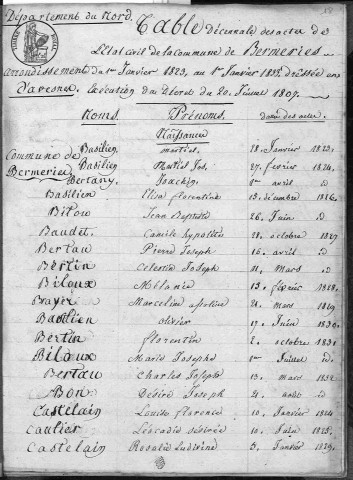 Département du Nord.
Table
décennale des actes de
l'Etat civil de la commune de Bermeries
arrondissement du 1er Janvier 1823, au 1er Janvier 1833, dressée en
d'avesnes. exécution du décret du 20 Juillet 1807.
Noms. Prénoms. dates des actes.
Naissance
Commune de Bermeries
Basilien martial 18. Janvier 1823.
Basilien Martial Jos. 27. février 1824.
Bertaux Joachim 8 avril id
Basilien Elisa florentine 13. décembre 1826.
Bilou Jean Baptiste 26. Juin id
Baudet Camile hypolite 28. octobre 1827
Bertau Pierre Joseph 16. avril id
Bertin Celestin Joseph 11. Mars id
Biloux Mélanie 13. février 1828.
Brayer Marceline 21. mars 1829
Basilien olivier 17. Juin 1830.
Bertin florentin 2. octobre 1831
Biloux Marie Josephe 1er Juillet id
Bertau Charles Joseph 13. mars 1832
Bon Désiré Joseph 21. août id
Castelain Louise florence 10. Janvier 1824
Caulier Léocadie désirée 10. Juin 1825.
Castelain Rosalie Ludivine 5. Janvier 1829.